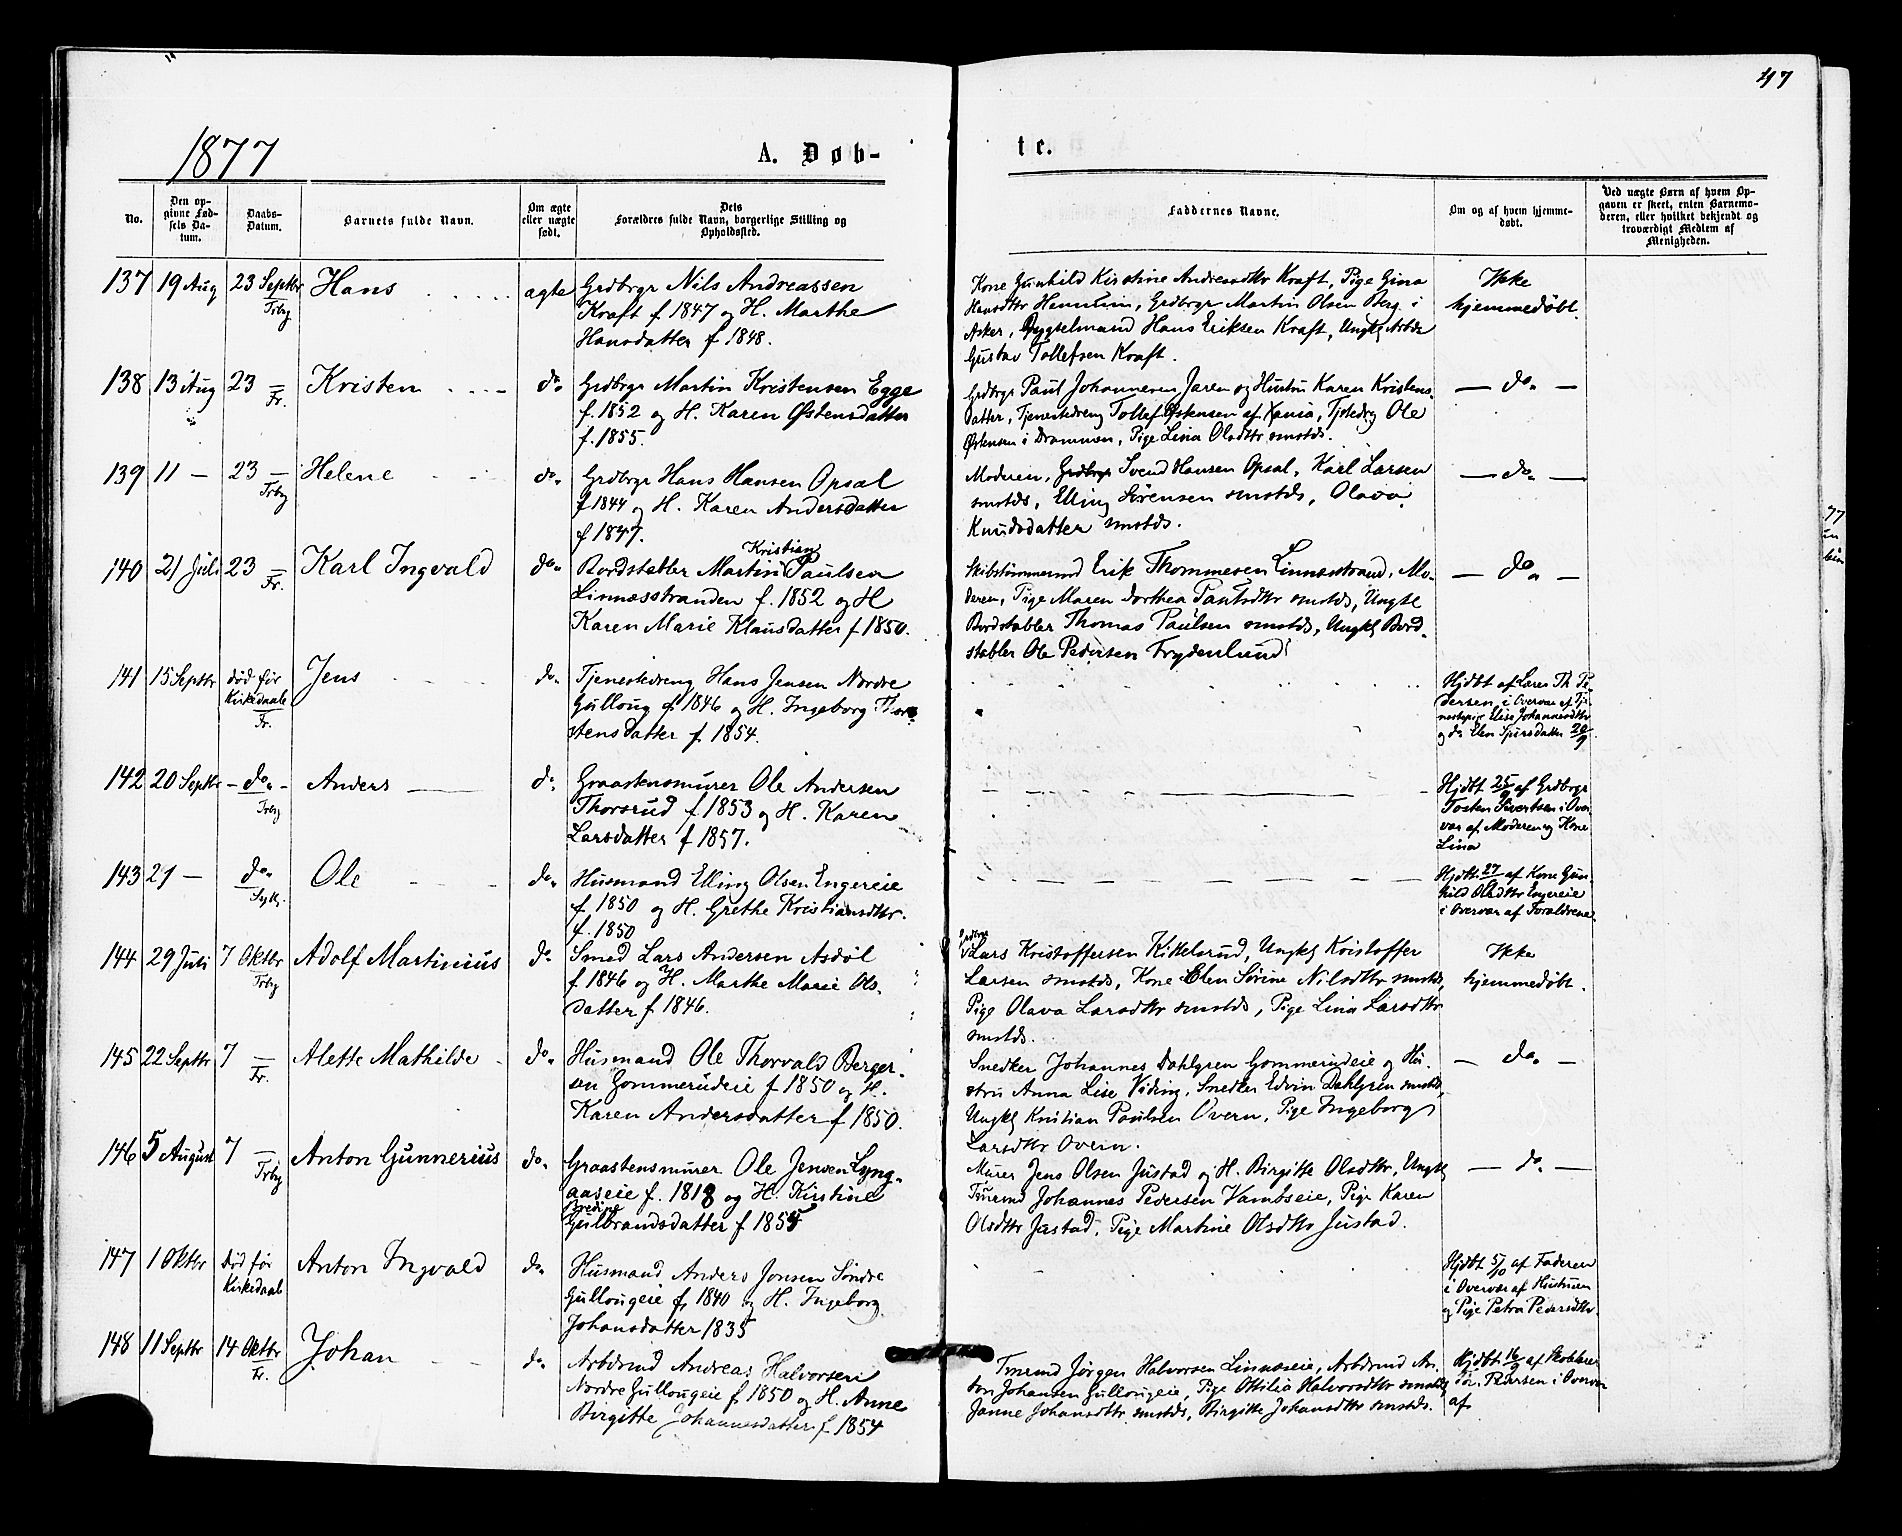 47
1877
A. Døb-
te.
No.
Den op-
givne Fød-
sels Da-
tum.
Daabs-
Datum.
Barnets fulde Navn.
Om ægte
eller uægte
født.
Dets
Forældres fulde Navn, borgerlige Stilling og
Opholdssted.
Faddernes Navne.
Om og af hvem hjemme-
døbt.
Ved uægte Børn af hvem Op-
gaven er skeet, enten Barnemo-
deren, eller hvilket bekjendt og
troværdigt Medlem af
Menigheden.
137 19 Aug 23 Septbr Trby Hans ægte
Grdbrgr Nils Andreassen
Kraft f. 1847 og H. Marthe
Hansdatter f 1848.
Kone Gunhild Kirstine Andreasdtr Kraft, Pige Gina
Hansdttr Hennum, Grdbrgr Martin Olsen Berg i
Asker, Bygselmand Hans Eriksen Kraft, Ungkl Arbdr
Gustav Tollefsen Kraft.
Ikke
hjemmedøbt.
138 13 Aug 23 — Fr. Kristen do.
Grdbrgr Martin Kristensen Egge
f. 1852 og H. Karen Østensdatter
f. 1855.
Grdbrgr Paul Johannesen Jaren og Hustru Karen Kristens-
datter, Tjenestedreng Tollef Østensen af Xania, Tjstedrg Ole
Østensen i Drammen, Pige Lina Olsdttr smstds.
— do. —
139 11 — 23 — Trby Helene do.
Grdbrgr Hans Hansen Opsal
f 1844 og H. Karen Andersdatter
f 1847.
Moderen, Grdbrgr Svend Hansen Opsal, Karl Larsen
smstds, Elling Sørensen smstds, Olava
Knudsdatter smstds.
— do. —
140 21 Juli 23 — Fr. Karl Ingvald do.
Kristian
Bordstabler Martin Paulsen
Linnæsstranden f. 1852 og H
Karen Marie Klausdatter f 1850.
Skibstømmermd Erik Thommesen Linnæsstrand, Mo-
deren, Pige Maren Dorthea Paulsdttr smstds, Ungkl
Bordstabler Thomas Paulsen smstds, Ungkl Bord-
stabler Ole Pedersen Frydenlund
— do. —
141 15 Septbr død før
Kirkedaab
Fr. Jens do.
Tjenestedreng Hans Jensen Nordre
Gulloug f. 1846 og H. Ingeborg Thor-
stensdatter f. 1854.
Hjdbt af Lærer Th Pe-
dersen, i Overvær af Tje-
nestepige Elise Johannesdttr
og do Elen Spersdatter 20/9
142 20 Septbr — do. — Trby Anders do.
Graastensmurer Ole Andersen
Thorsrud f. 1853 og H. Karen
Larsdatter f 1857.
Hjdbt 25/9 af Grdbrgr
Tosten Sivertsen i Over-
vær af Moderen og Kone
Lina
143 21 — do. Sylg. Ole do.
Husmand Elling Olsen Engereie
f. 1850 og H. Grethe Kristiansdttr.
f. 1850
Hjdbt. 27/9 af Kone Gun-
hild Olsdttr Engereie
i Overvær af Forældrene.
144 29 Juli 7 Oktbr Trby Adolf Martinius do.
Smed Lars Andersen Asdøl
f. 1846 og H. Marthe Marie Ols-
datter f. 1846.
Grdbrgr
Lars Kristoffersen Kittelsrud, Ungkl Kristoffer
Larsen smstds, Kone Elen Sørine Nilsdttr smstds,
Pige Olava Larsdttr smstds, Pige Lina Larsdttr
smstds.
Ikke
hjemmedøbt.
145 22 Septbr 7 — Fr. Alette Mathilde do.
Husmand Ole Thorvald Berger-
sen Gommerudeie f 1850 og H.
Karen Andersdatter f 1850.
Snedker Johannes Dahlgren Gommerudeie og Hu-
stru Anna Lise Viding, Snedker Edvin Dahlgren smstds,
Ungkl Kristian Paulsen Overn, Pige Ingeborg
Larsdttr Overn.
— do. —
146 5 August 7 — Trby Anton Gunnerius do.
Graastensmurer Ole Jensen Lyng-
aaseie f. 1818 og H. Kirstine
Bredine
Gulbrandsdatter f 1855
Murer Jens Olsen Justad og H. Birgitte Olsdttr, Ungkl
Tmrmd Johannes Pedersen Vambseie, Pige Karen
Olsdttr Justad, Pige Martine Olsdttr Justad.
— do. —
147 1 Oktbr død før
Kirkedaab Anton Ingvald do.
Husmand Anders Jonsen Søndre
Gullougeie f. 1840 og H. Ingeborg
Johansdatter 1835
Hjdbt 5/10 af Faderen
i Overvær af Hustruen
og Pige Petra Pedersdttr.
148 11 Septbr 14 Oktbr Fr. Johan do.
Arbdrmd Andreas Halvorsen
Nordre Gullougeie f. 1850 og H. Anne
Birgitte Johannesdatter f 1854
Tmrmd Jörgen Halvorsen Linnæseie, Arbdrmd An-
ton Johansen Gullougeie, Pige Ottilia Halvorsdttr smstds
Janne Johansdttr smstds, Birgitte Johansdttr smstds.
Hjdbt 16/9 af Skolelærer
Pedersen i Overvær
af